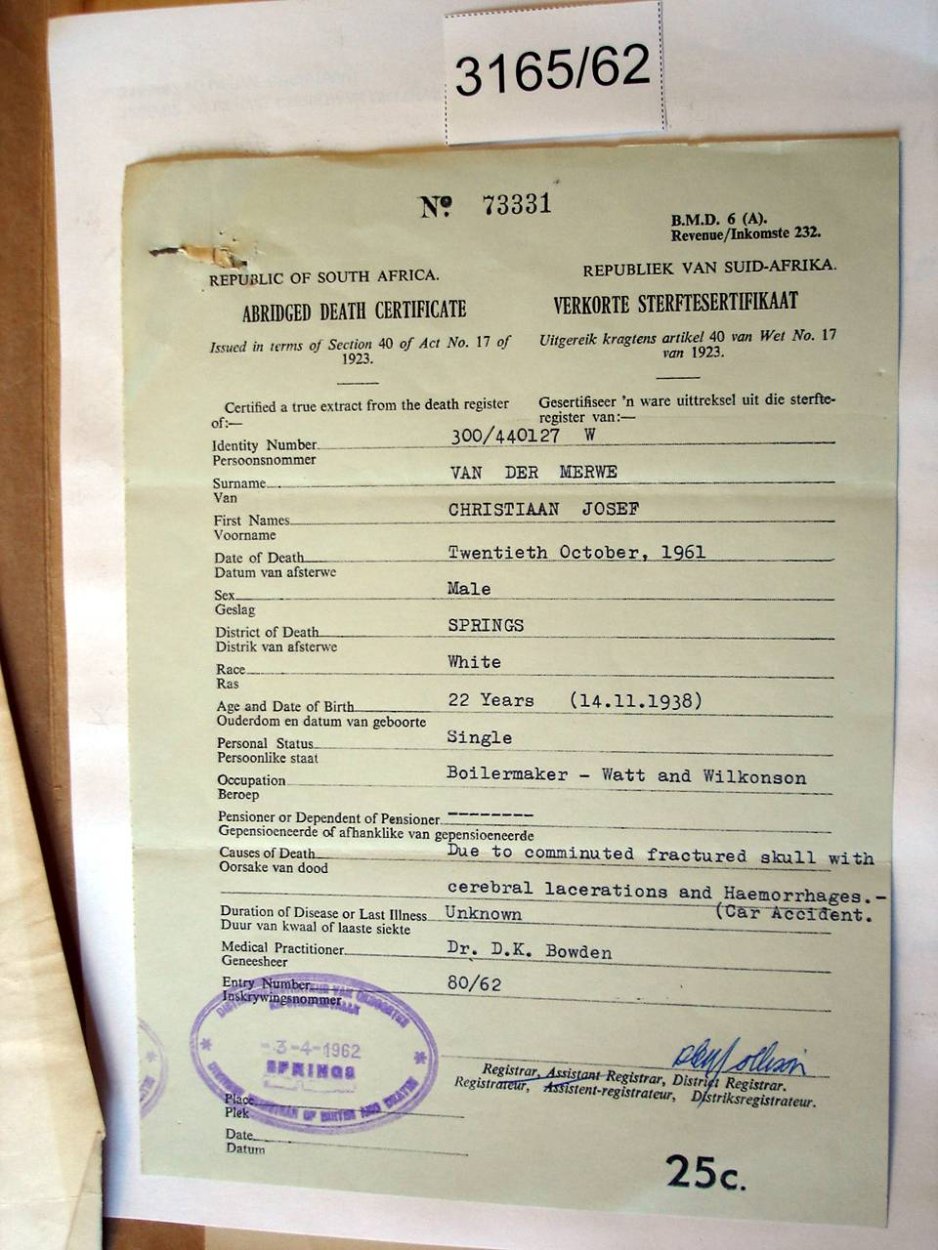 3165/62
Nº 73331
B.M.D. 6 (A).
Revenue/Inkomste 232.
REPUBLIC OF SOUTH AFRICA.
REPUBLIEK VAN SUID-AFRIKA.
ABRIDGED DEATH CERTIFICATE
VERKORTE STERFTESERTIFIKAAT
Issued in terms of Section 40 of Act No. 17 of
1923.
Uitgereik kragtens artikel 40 van Wet No. 17
van 1923.
Certified a true extract from the death register
of:—
Gesertifiseer 'n ware uittreksel uit die sterfte-
register van:—
Identity Number 300/440127 W
Persoonsnommer
Surname VAN DER MERWE
Van
First Names CHRISTIAAN JOSEF
Voorname
Date of Death Twentieth October, 1961
Datum van afsterwe
Sex Male
Geslag
District of Death SPRINGS
Distrik van afsterwe
Race White
Ras
Age and Date of Birth 22 Years (14.11.1938)
Ouderdom en datum van geboorte
Personal Status Single
Persoonlike staat
Occupation Boilermaker - Watt and Wilkonson
Beroep
Pensioner or Dependent of Pensioner --------
Gepensioeneerde of afhanklike van gepensioeneerde
Causes of Death Due to comminuted fractured skull with
Oorsake van dood
cerebral lacerations and Haemorrhages.-
(Car Accident.
Duration of Disease or Last Illness Unknown
Duur van kwaal of laaste siekte
Medical Practitioner Dr. D.K. Bowden
Geneesheer
Entry Number 80/62
Inskrywingsnommer
-3-4-1962
SPRINGS
Registrar, Assistant Registrar, District Registrar.
Registrateur, Assistent-registrateur, Distriksregistrateur.
Place
Plek
Date
Datum
25c.